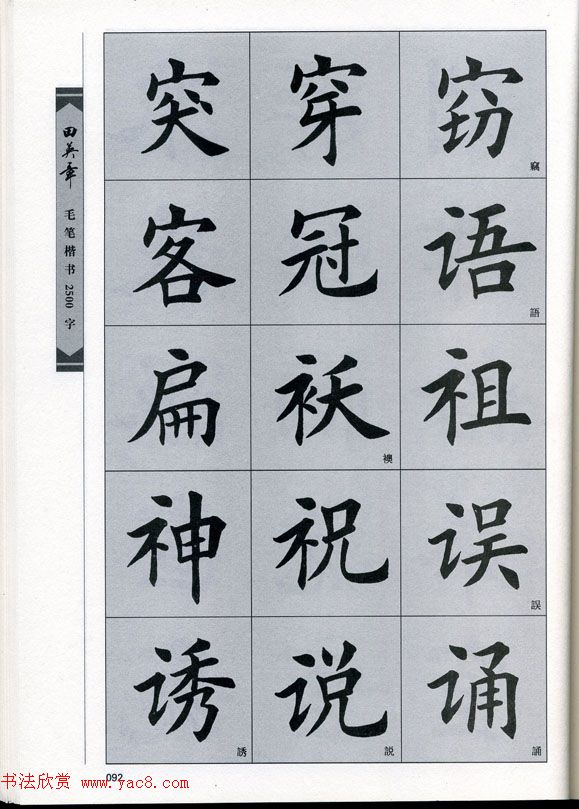 田英章 毛笔楷书 2500 字
突 穿 窃 竊
客 冠 语 語
扁 袄 襖 祖
神 祝 误 誤
诱 誘 说 説 诵 誦
092
书法欣赏 www.yac8.com